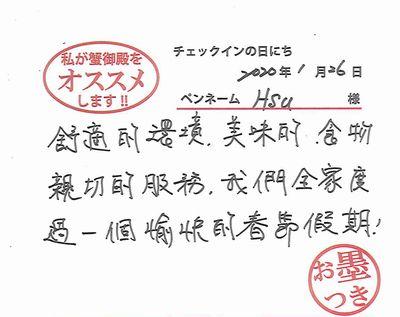 私が蟹御殿を
オススメ
します!!
チェックインの日にち
2020年 1月26日
ペンネーム Hsu 様
舒適的還境.美味的.食物
親切的服務.我們全家度
過一個愉快的春節假期!
お墨
つき